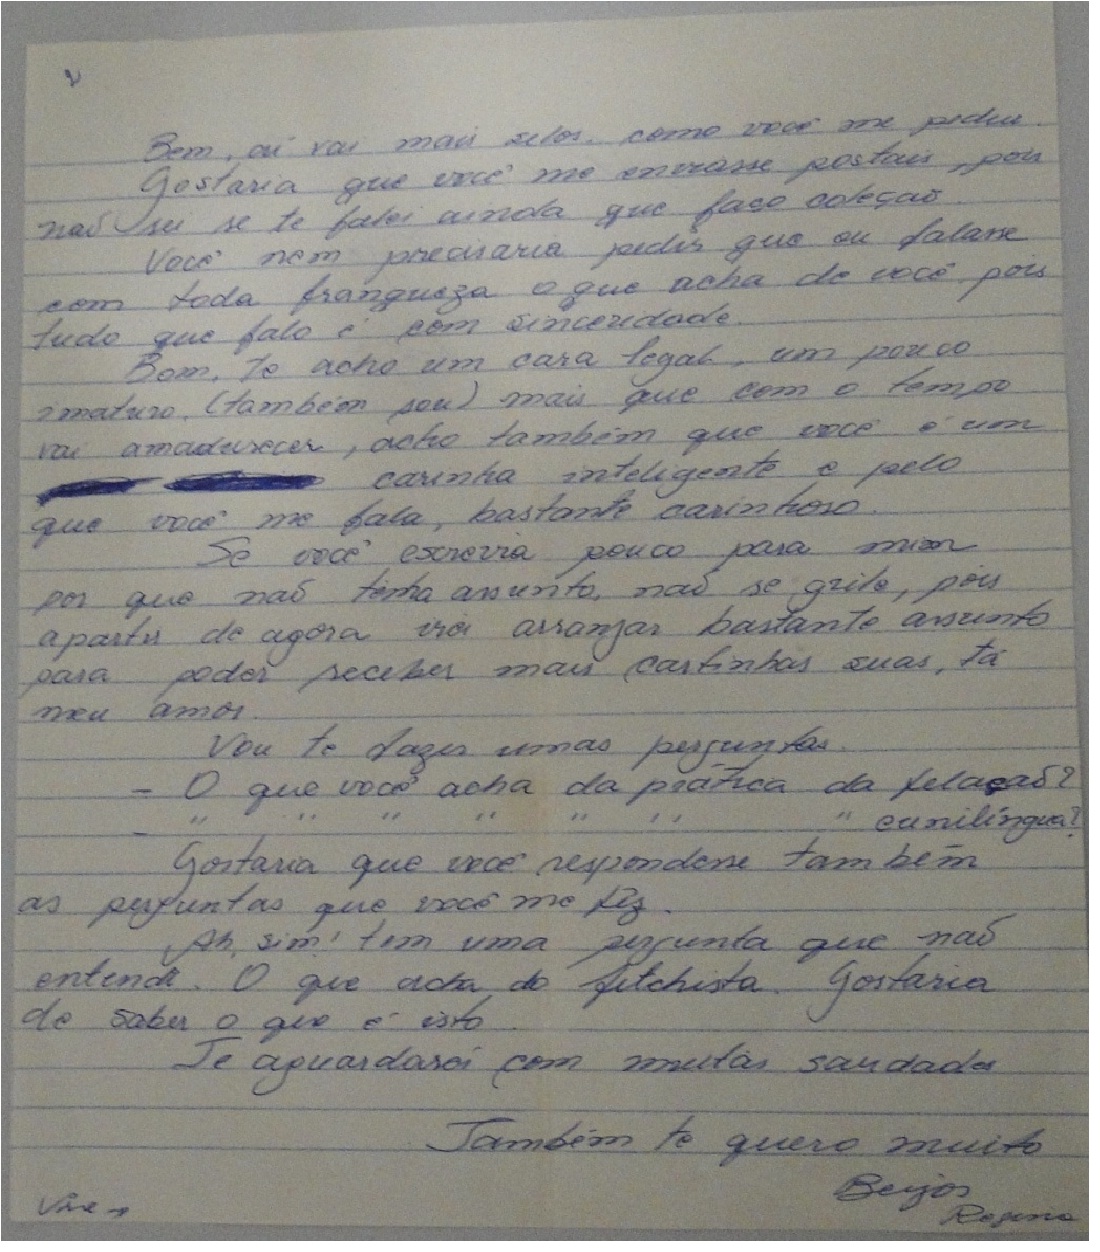 2
Bem, aí vai mais selos. como você me pediu.
Gostaria que você me enviasse postais, pois
não sei se te falei ainda que faço coleção.
Você nem precisaria pedir que eu falasse
com toda franqueza o que acha de você pois
tudo que falo é com sinceridade.
Bom, te acho um cara legal, um pouco
imaturo, (também sou) mais que com o tempo
vai amadurecer, acho também que você é um
carinha inteligente e pelo
que você me fala, bastante carinhoso.
Se você escrevia pouco para mim
por que não tinha assunto, não se grile, pois
apartir de agora irei arranjar bastante assunto
para poder receber mais cartinhas suas, tá
meu amor.
Vou te fazer umas perguntas.
- O que você acha da prática da felação?
- " " " " " " " cunilíngua?
Gostaria que você respondesse também
as perguntas que você me fez.
Ah, sim! tem uma pergunta que não
entendi. O que acha do fitchista. Gostaria
de saber o que é isto.
Te aguardarei com muitas saudades
Também te quero muito
Beijos
Rosana
Vire →